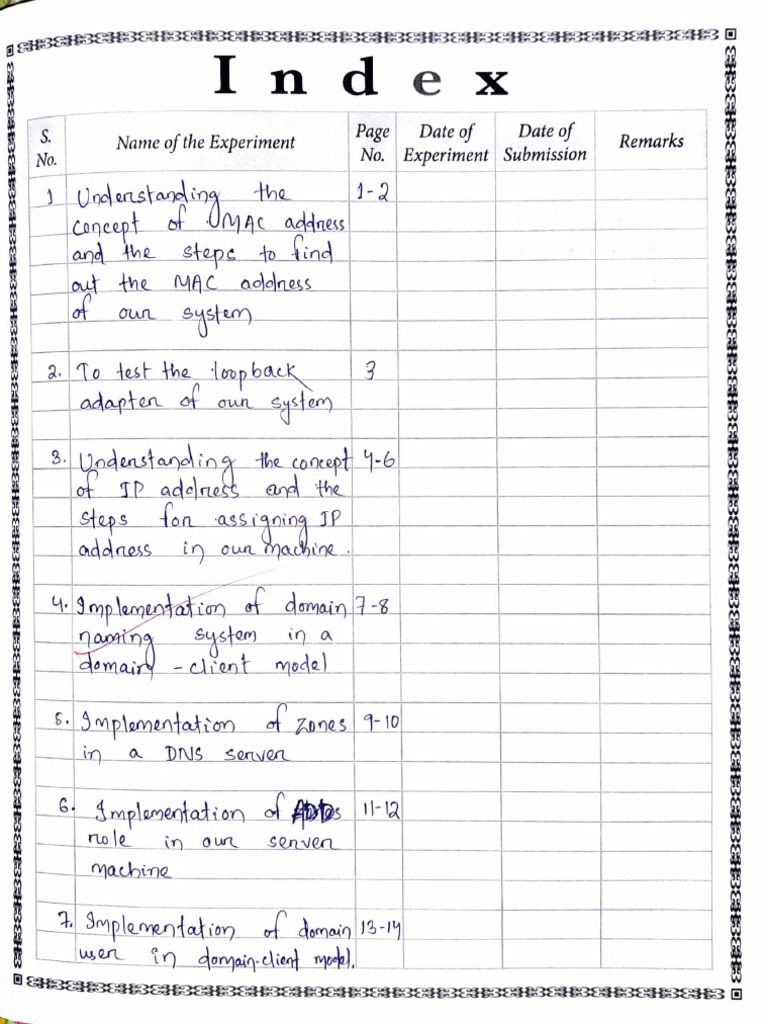 Index
S. No. Name of the Experiment Page No. Date of Experiment Date of Submission Remarks
1 Understanding the 1-2
concept of MAC address
and the steps to find
out the MAC address
of our system
2. To test the loopback 3
adapter of our system
3. Understanding the concept 4-6
of IP address and the
steps for assigning IP
address in our machine.
4. Implementation of domain 7-8
naming system in a
domain - client model
5. Implementation of Zones 9-10
in a DNS server
6. Implementation of 11-12
role in our server
machine
7. Implementation of domain 13-14
user in domain-client model.